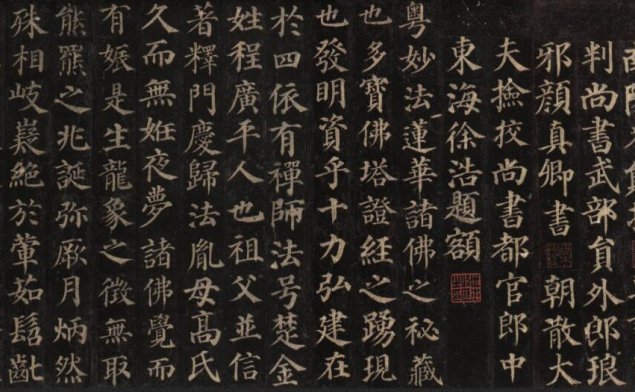 判尚書武部員外郎琅
邪顏真卿書 朝散大
夫撿校尚書都官郎中
東海徐浩題額
粵妙法蓮華諸佛之秘藏
也多寶佛塔證經之踴現
也發明資乎十力弘建在
於四依有禪師法号楚金
姓程廣平人也祖父並信
著釋門慶歸法胤母高氏
久而無姙夜夢諸佛覺而
有娠是生龍象之徵無取
熊羆之兆誕弥厥月炳然
殊相岐嶷絕於葷茹髫齔